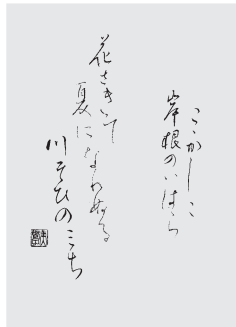 こゝかしこ
岸根のいはら
花さきて
夏になりぬる
川そひのみち